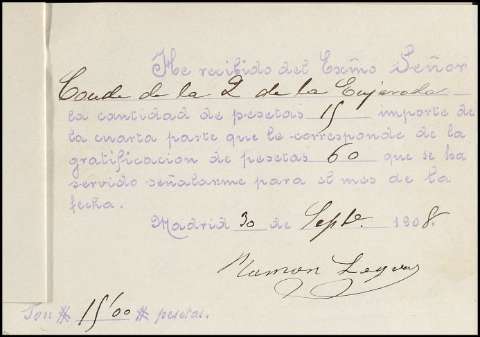 He recibido del Exmo Señor
Conde de la Q de la Enjarada
la cantidad de pesetas 15 importe de
la cuarta parte que le corresponde de la
gratificacion de pesetas 60 que se ha
servido señalarme para el mes de la
fecha.
Madrid 30 de Septe. 1908.
Ramon
Son # 15'00 # pesetas.